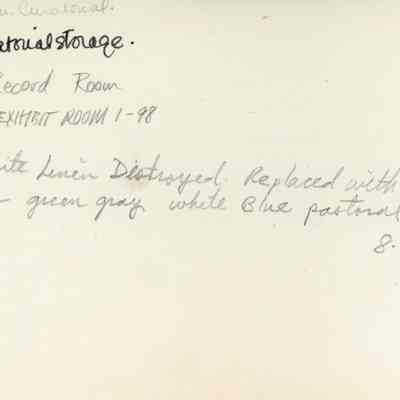 Curatorial.
atorial storage.
Record Room
EXHIBIT ROOM 1-98
ite Linen Destroyed. Replaced with
- green gray white Blue pastoral
8.